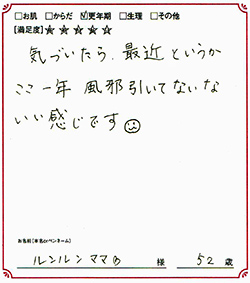 □お肌 □からだ ☑更年期 □生理 □その他
[満足度]★★★★★
気づいたら、最近というか
ここ一年 風邪引いてないな
いい感じです☺
お名前[本名orペンネーム]
ルンルンママ 様 52 歳